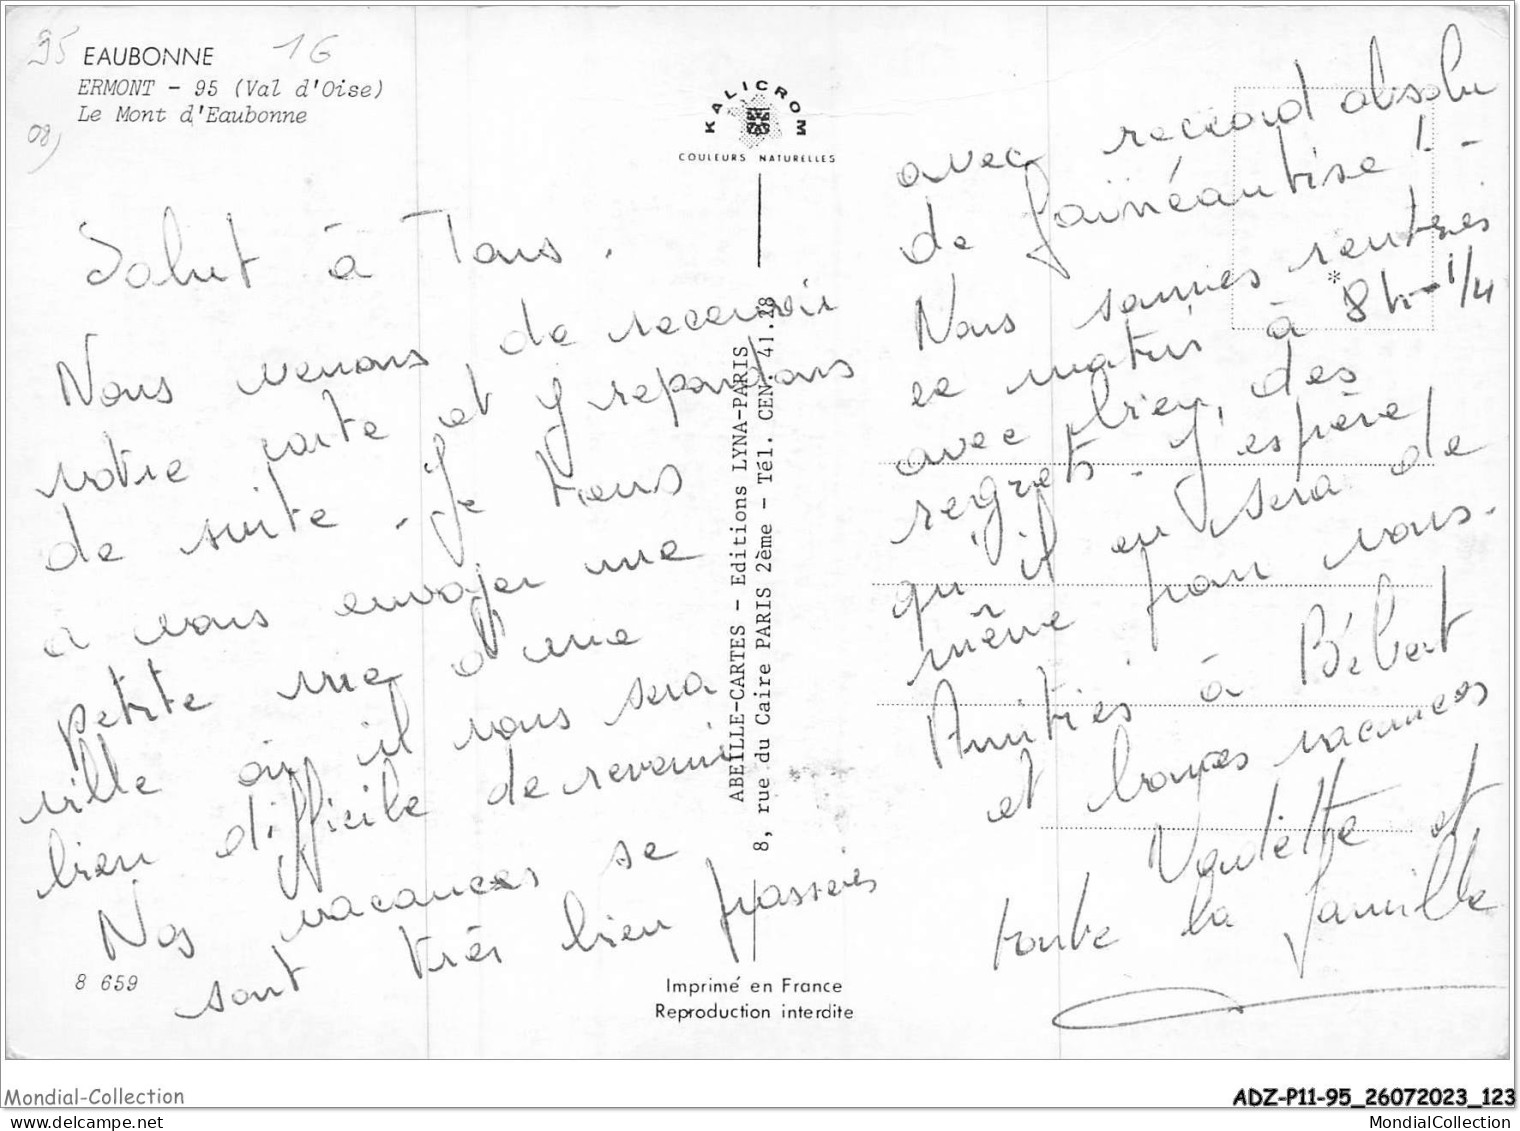 95 EAUBONNE 16
ERMONT - 95 (Val d'Oise)
Le Mont d'Eaubonne
08)
KALICROM
COULEURS NATURELLES
Salut à Tous.
Nous venons de recevoir
votre carte et j'y repondons
de suite. Je tiens
à vous envoyer une
petite vue d'une
ville où il vous sera
bien difficile de revenir
Nos vacances se
sont très bien passées
8 659
ABEILLE-CARTES - Editions LYNA-PARIS
8, rue du Caire PARIS 2ème - Tél. CEN. 41.28
Imprimé en France
Reproduction interdite
avec record absolu
de fainéantise ! -
Nous sommes rentrés
ce matin à 8h 1/4
avec bien, des
regrets - J'espère,
qu'il en sera de
même pour vous.
Amitiés à Bébert
et bonnes vacances
Claudette et
toute la famille
Mondial-Collection
ADZ-P11-95_26072023_123
mondialcollection.delcampe.net
MondialCollection